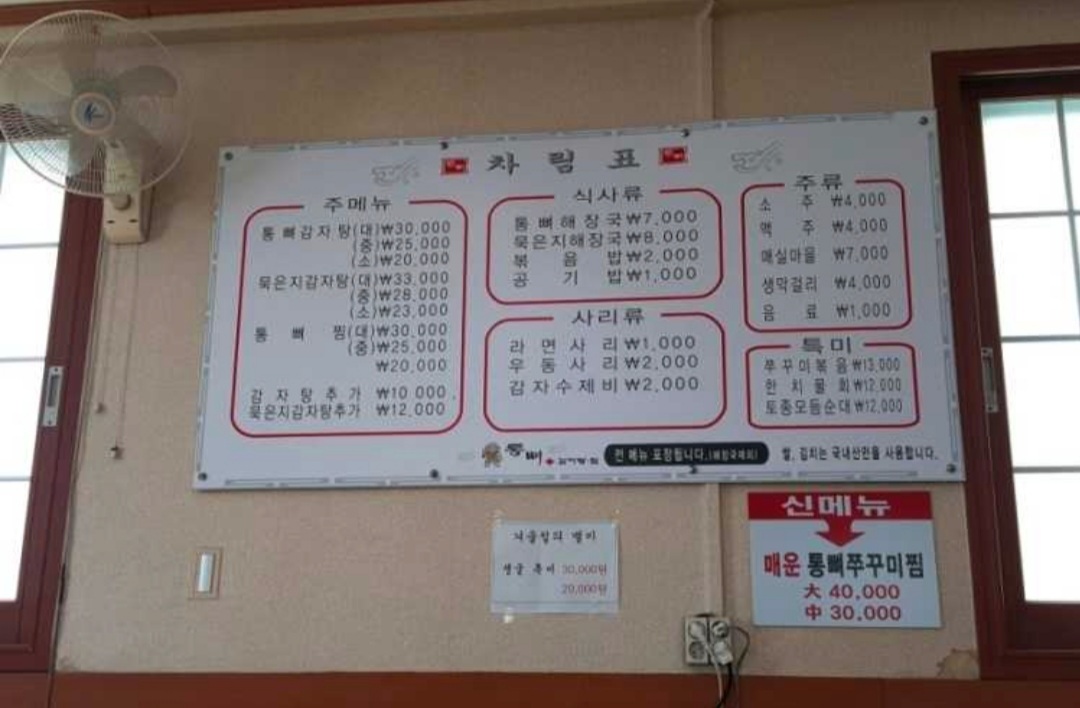 차림표
주메뉴
통뼈감자탕(대)₩30,000
(중)₩25,000
(소)₩20,000
묵은지감자탕(대)₩33,000
(중)₩28,000
(소)₩23,000
통뼈찜(대)₩30,000
(중)₩25,000
₩20,000
감자탕추가 ₩10,000
묵은지감자탕추가 ₩12,000
식사류
통뼈해장국₩7,000
묵은지해장국₩8,000
볶음밥₩2,000
공기밥₩1,000
사리류
라면사리₩1,000
우동사리₩2,000
감자수제비₩2,000
주류
소주 ₩4,000
맥주 ₩4,000
매실마을 ₩7,000
생막걸리 ₩4,000
음료 ₩1,000
특미
쭈꾸미볶음₩13,000
한치물회₩12,000
토종모듬순대₩12,000
통뼈
전 메뉴 포장됩니다.
쌀, 김치는 국내산만을 사용합니다.
겨울철의 별미
생굴 30,000원
20,000원
신메뉴
매운 통뼈쭈꾸미찜
大 40,000
中 30,000